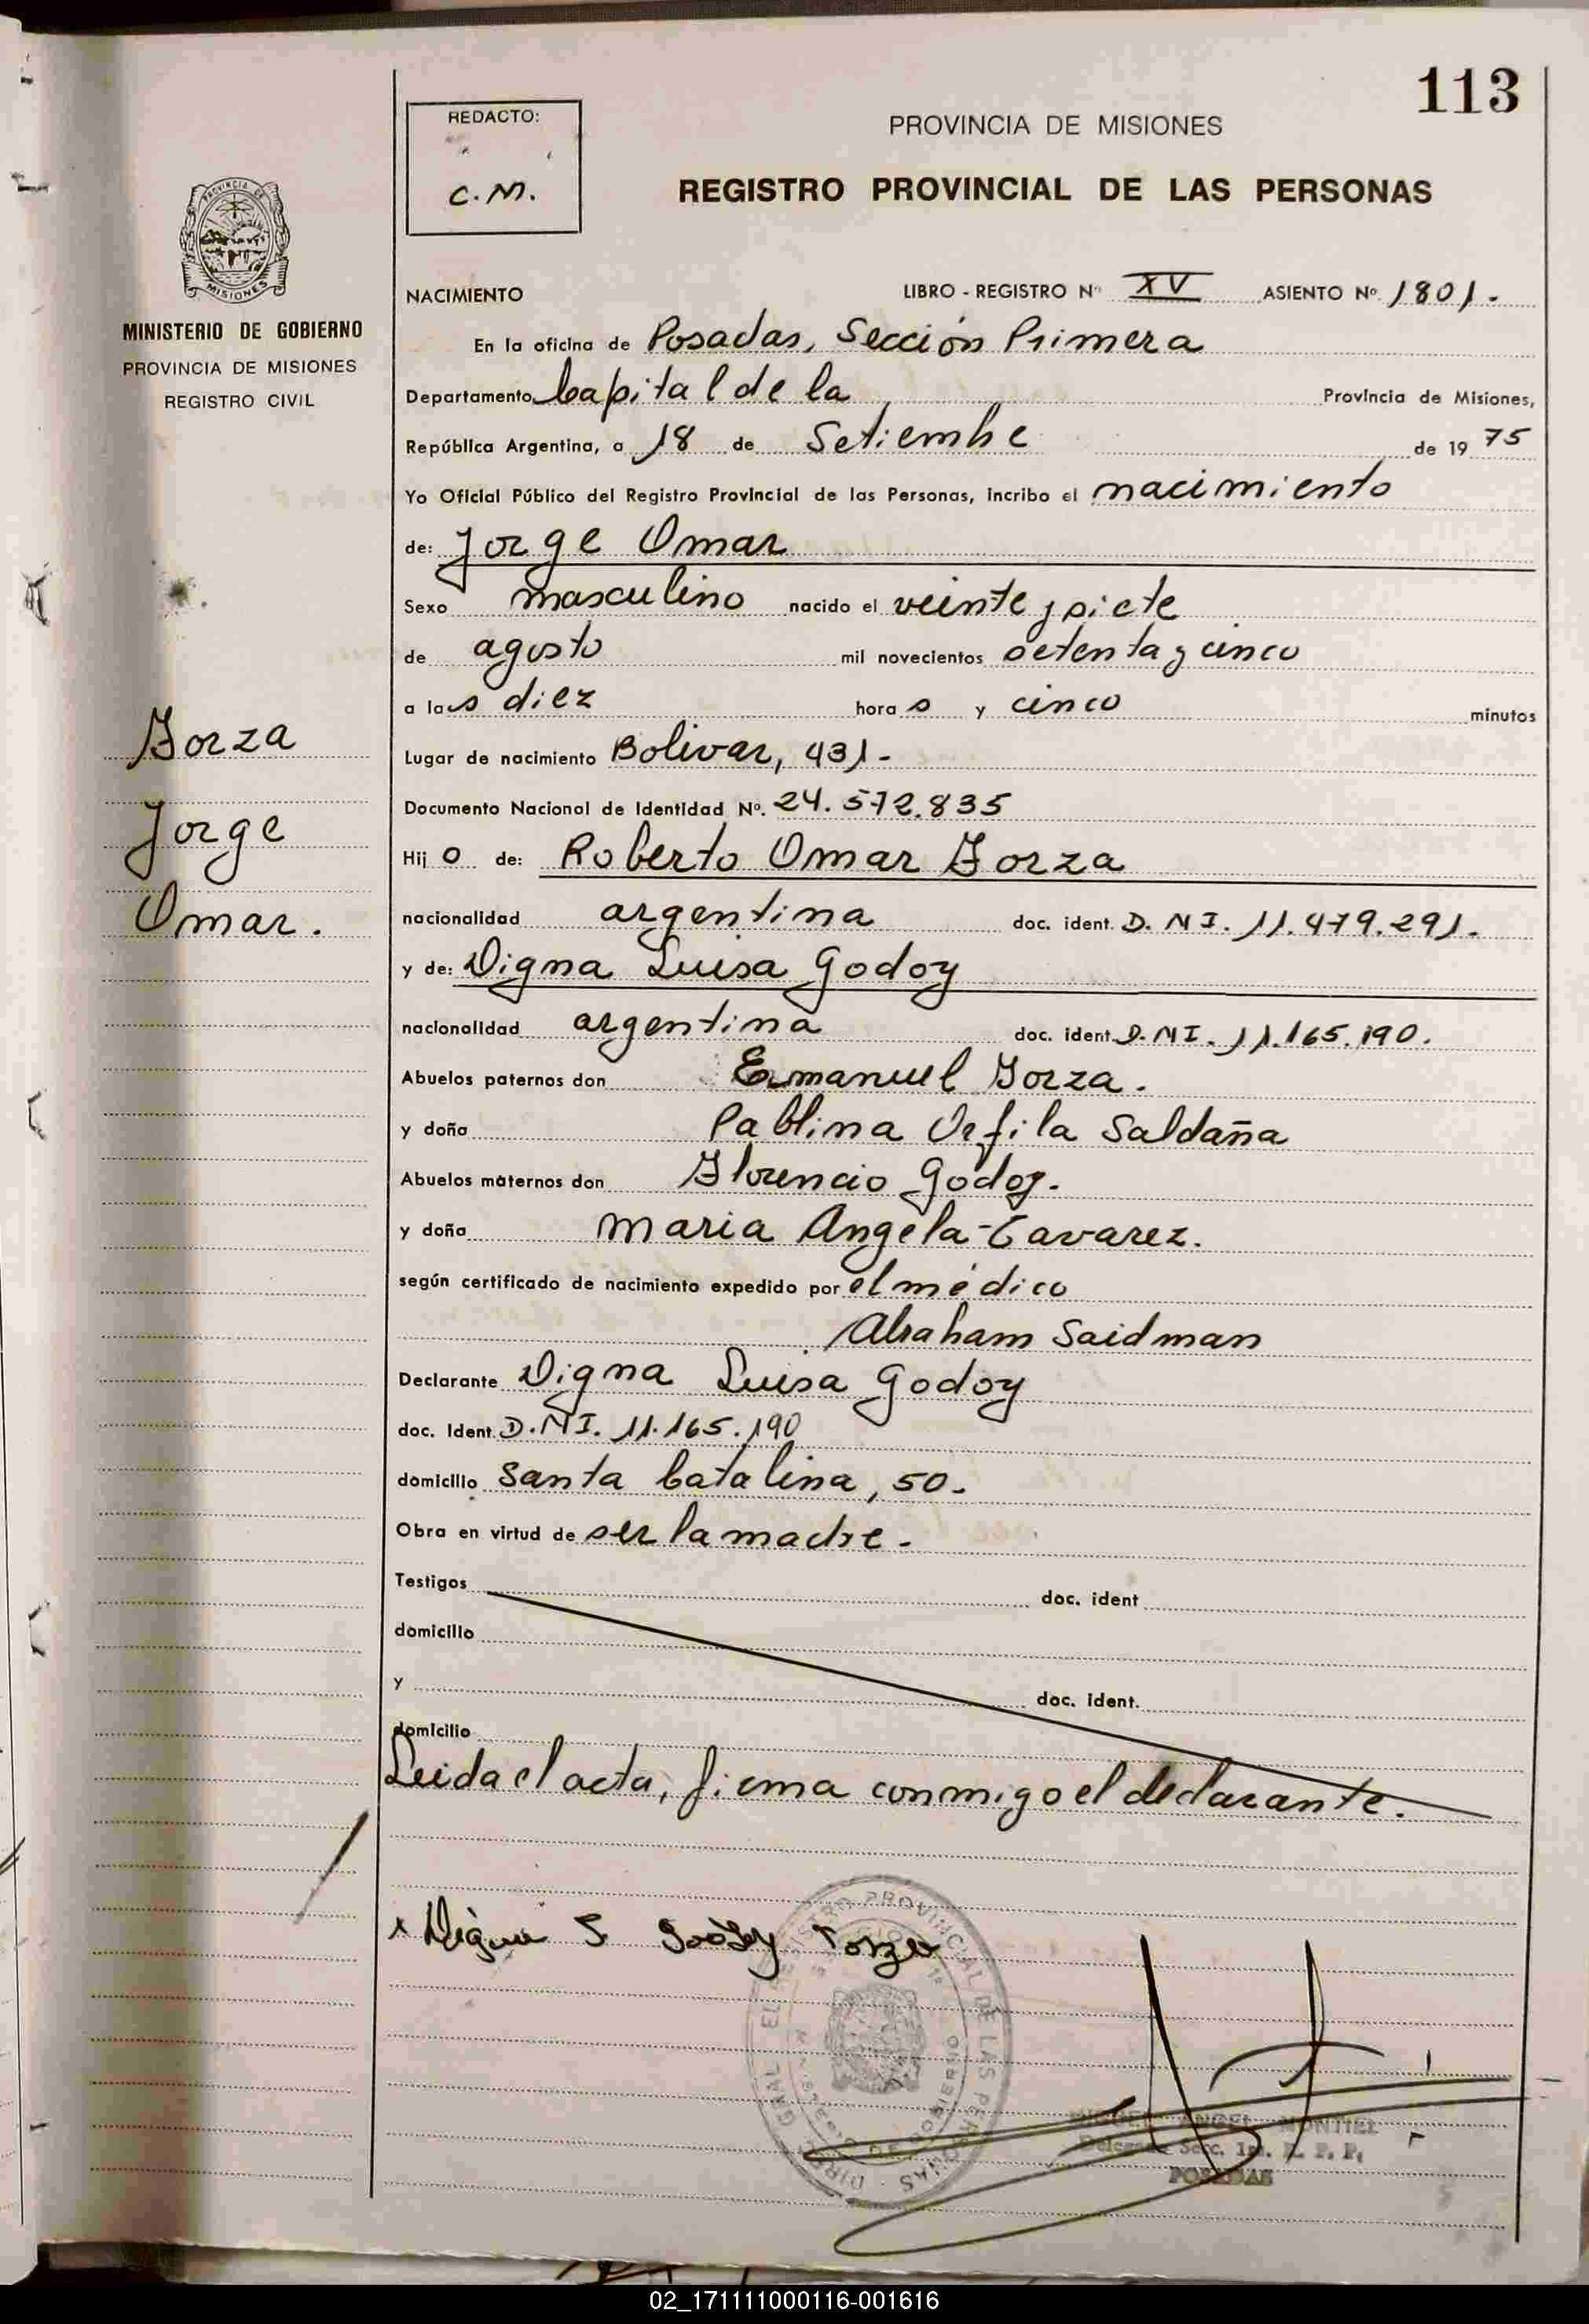 113
REDACTO:
C.M.
PROVINCIA DE MISIONES
REGISTRO PROVINCIAL DE LAS PERSONAS
PROVINCIA DE
MISIONES
MINISTERIO DE GOBIERNO
PROVINCIA DE MISIONES
REGISTRO CIVIL
NACIMIENTO LIBRO - REGISTRO Nº XV ASIENTO Nº 1801.
En la oficina de Posadas, Sección Primera
Departamento Capital de la Provincia de Misiones,
República Argentina, a 18 de Setiembre de 1975
Yo Oficial Público del Registro Provincial de las Personas, incribo el nacimiento
de: Jorge Omar
Sexo masculino nacido el veinte y siete
de agosto mil novecientos setenta y cinco
a las diez horas y cinco minutos
Lugar de nacimiento Bolivar, 431.-
Documento Nacional de Identidad Nº. 24.572.835
Hijo de: Roberto Omar Forza
nacionalidad argentina doc. ident. D.N.I. 11.479.291.
y de: Digna Luisa Godoy
nacionalidad argentina doc. ident. D.N.I. 11.165.190.
Abuelos paternos don Emanuel Forza.
y doña Pablina Orfila Saldaña
Abuelos maternos don Florencio Godoy.
y doña Maria Angela Tavarez.
según certificado de nacimiento expedido por el médico
Abraham Saidman
Declarante Digna Luisa Godoy
doc. Ident. D.N.I. 11.165.190
domicilio Santa Catalina, 50.
Obra en virtud de ser la madre.
Testigos doc. ident
domicilio
y doc. ident.
domicilio
Leida el acta, firma conmigo el declarante.
Forza
Jorge
Omar.
x Digna L Godoy Forza
DIREC GRAL EL REGISTRO PROVINCIAL DE LAS PERSONAS
MIGUEL ANGEL MONTIEL
Delegado Secc. 1ra. R. P. P.
POSADAS
02_171111000116-001616